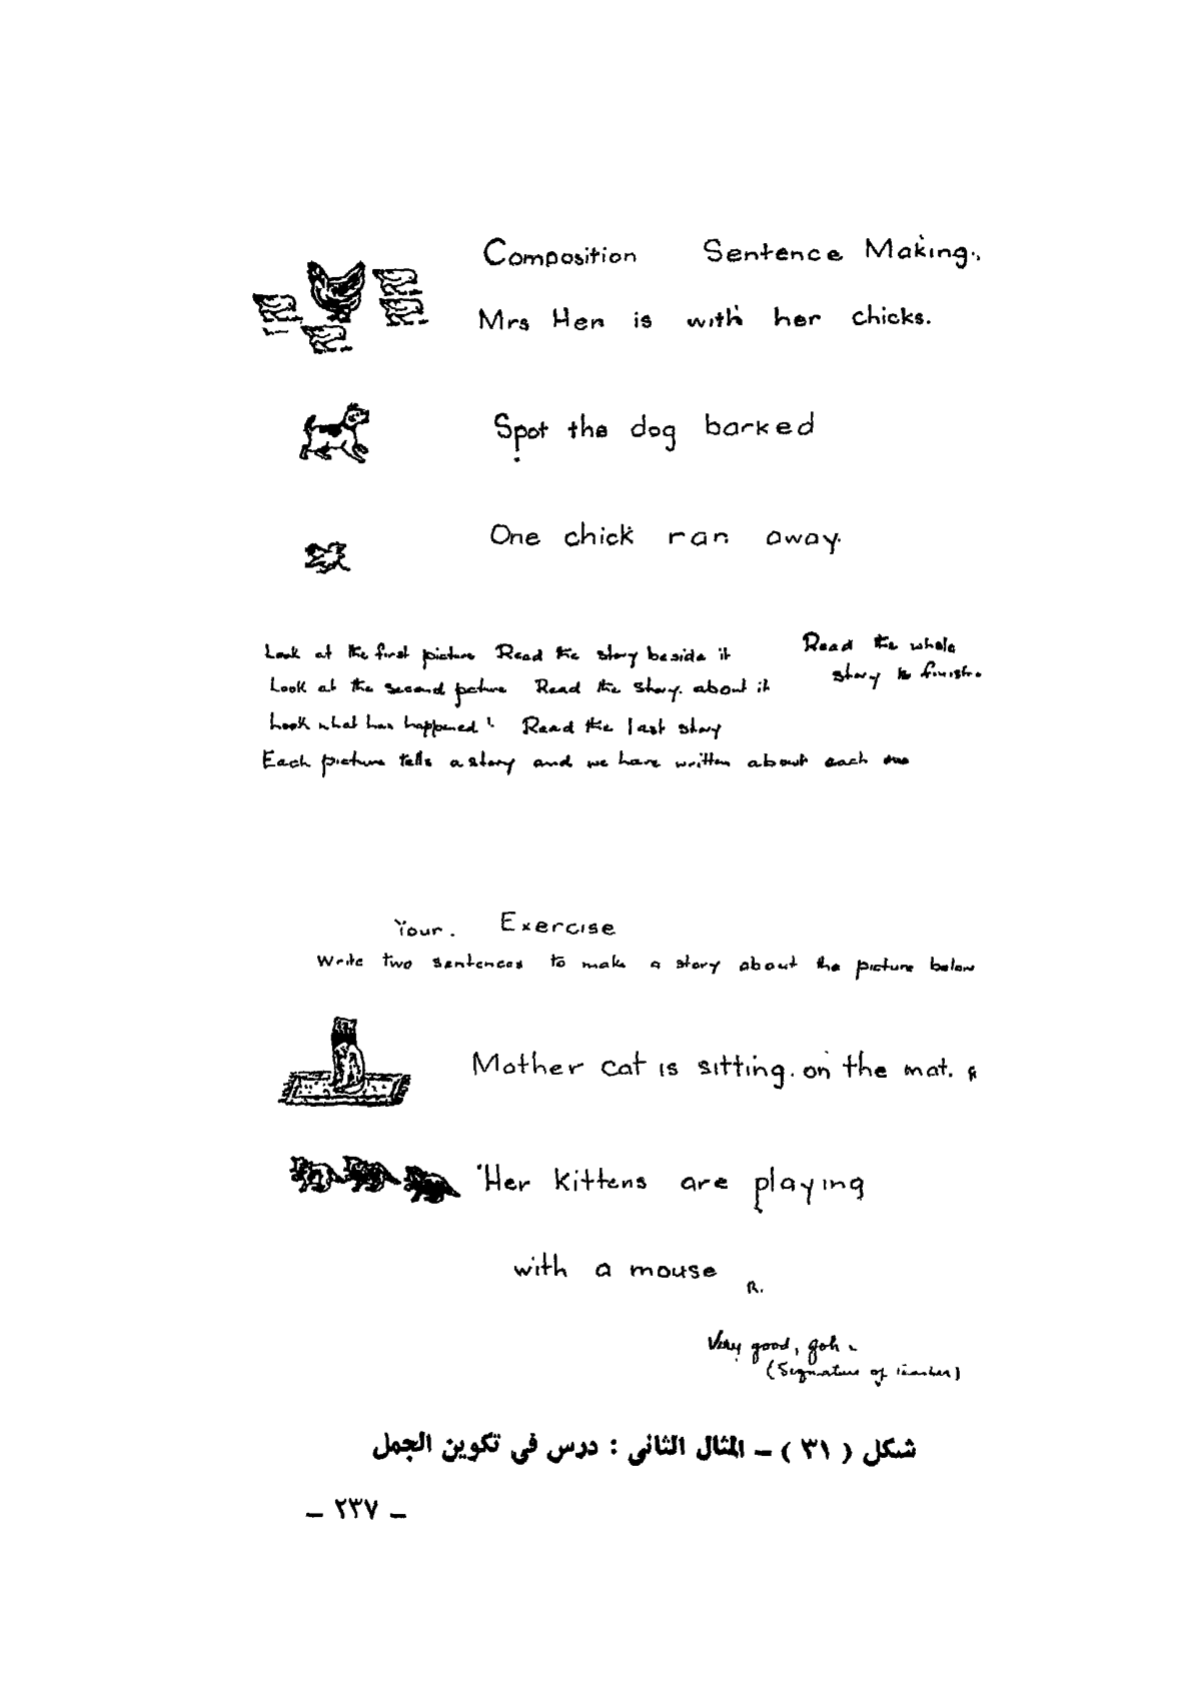 Composition Sentence Making.
Mrs Hen is with her chicks.
Spot the dog barked
One chick ran away.
Look at the first picture Read the story beside it
Look at the second pcture Read the story. about it
Look what has happened! Read the last story
Each picture tells a story and we have written about each one
Read the whole
story to finish.
Your. Exercise
Write two sentences to make a story about the picture below
Mother cat is sitting. on the mat. R
Her kittens are playing
with a mouse R.
Very good, goh.
(Signature of teacher)
شكل ( ٣١ ) – المثال الثانى : درس فى تكوين الجمل
– ٢٣٧ –